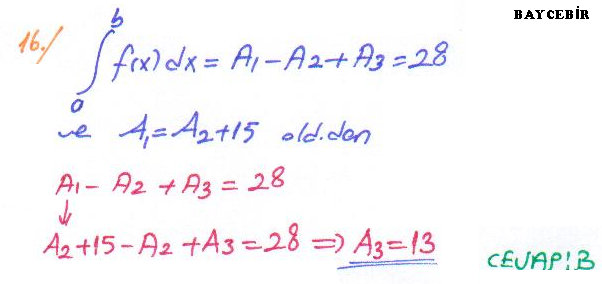 BAYCEBİR
16./ ∫₀ᵇ f(x) dx = A₁ - A₂ + A₃ = 28
ve A₁ = A₂ + 15 old.dan
A₁ - A₂ + A₃ = 28
↓
A₂ + 15 - A₂ + A₃ = 28 ⇒ A₃ = 13
CEVAP: B